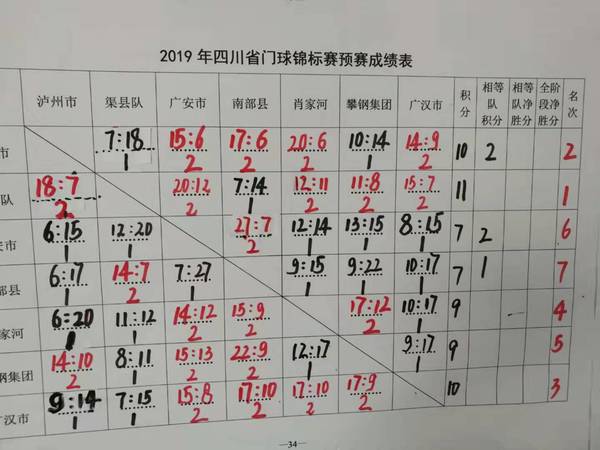 2019年四川省门球锦标赛预赛成绩表
泸州市 渠县队 广安市 南部县 肖家河 攀钢集团 广汉市 积分 相等队积分 相等队净胜分 全阶段净胜分 名次
市 7:18 15:6 17:6 20:6 10:14 14:9 10 2 2
1 2 2 2 1 2
队 18:7 20:12 7:14 12:11 11:8 15:7 11 1
2 2 1 2 2 2
安市 6:15 12:20 27:7 12:14 13:15 8:15 7 2 6
1 1 2 1 1 1
部县 6:17 14:7 7:27 9:15 9:22 10:17 7 1 7
1 2 1 1 1 1
家河 6:20 11:12 14:12 15:9 17:12 10:17 9 4
1 1 2 2 2 1
钢集团 14:10 8:11 15:13 22:9 12:17 9:17 9 5
2 1 2 2 1 1
广汉市 9:14 7:15 15:8 17:10 17:10 17:9 10 3
1 1 2 2 2 2
—34—